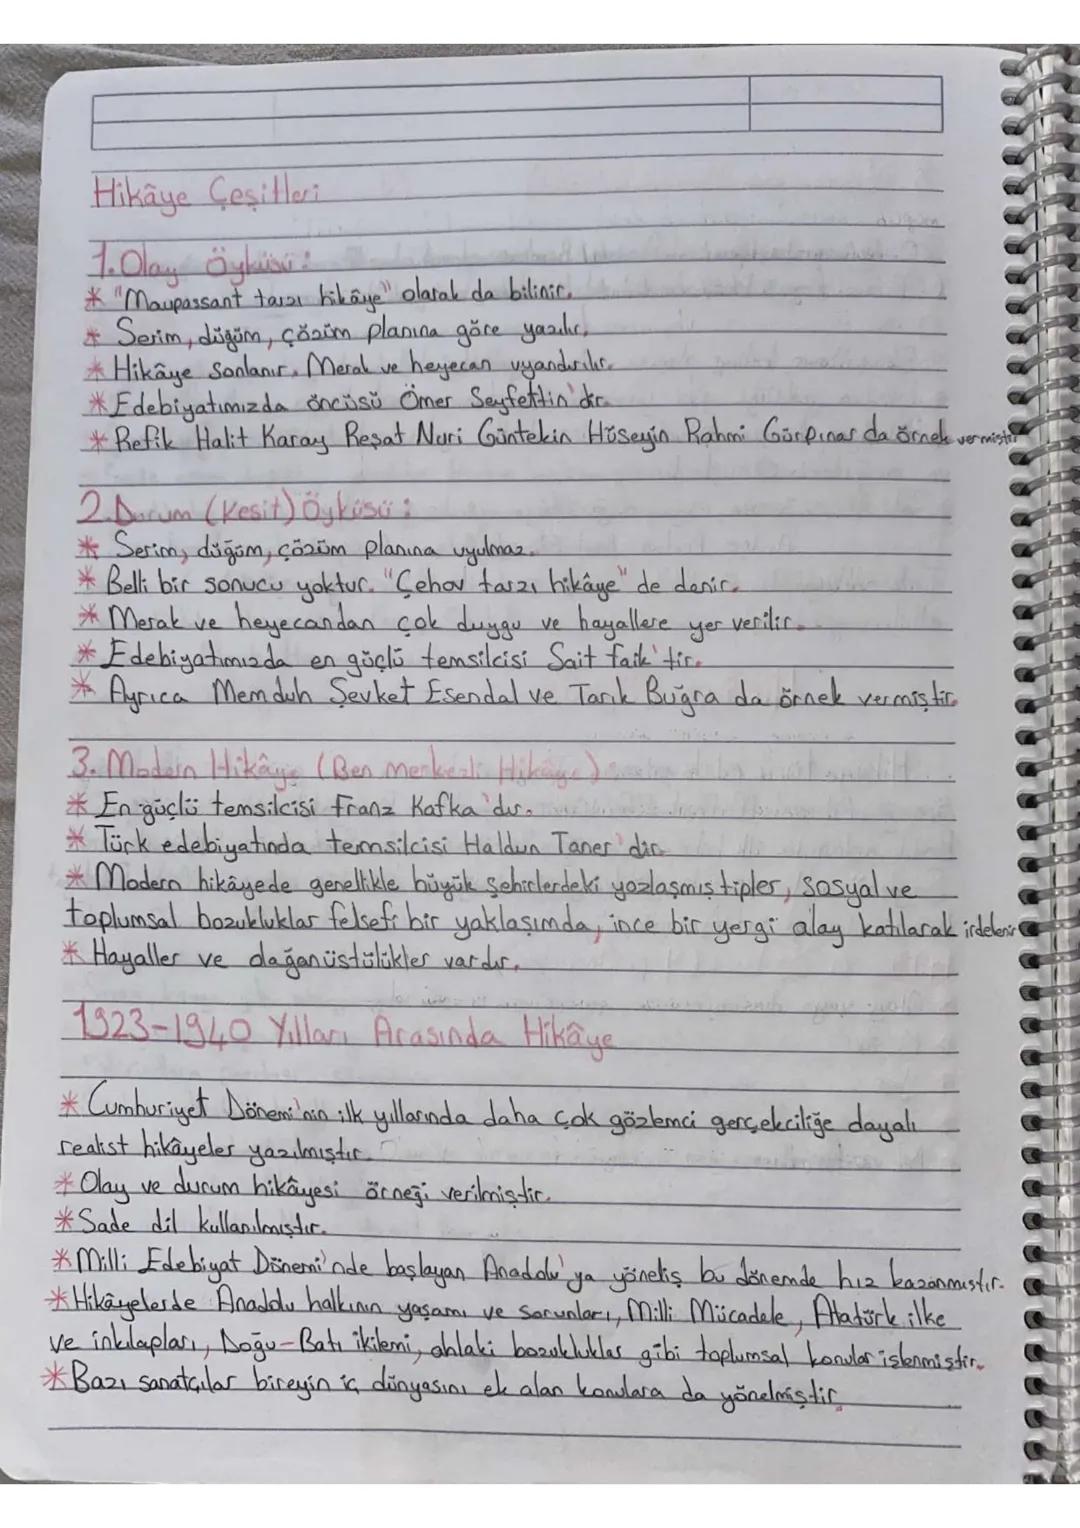 Hikâye Çeşitleri
1. Olay Öyküsü:
* "Maupassant tarzı hikâye" olarak da bilinir.
* Serim, düğüm, çözüm planına göre yazılır.
* Hikâye sonlanır. Merak ve heyecan uyandırılır.
* Edebiyatımızda öncüsü Ömer Seyfettin'dir.
* Refik Halit Karay Reşat Nuri Güntekin Hüseyin Rahmi Gürpınar da örnek vermiştir
2. Durum (Kesit) Öyküsü:
* Serim, düğüm, çözüm planına uyulmaz.
* Belli bir sonucu yoktur. "Çehov tarzı hikâye" de denir.
* Merak ve heyecandan çok duygu ve hayallere yer verilir.
* Edebiyatımızda en güçlü temsilcisi Sait faik'tir.
* Ayrıca Memduh Şevket Esendal ve Tarık Buğra da örnek vermiştir.
3. Modern Hikâye (Ben merkezli Hikâye)
* En güçlü temsilcisi Franz Kafka'dır.
* Türk edebiyatında temsilcisi Haldun Taner'dir
* Modern hikâyede genellikle büyük şehirlerdeki yozlaşmış tipler, sosyal ve
toplumsal bozukluklar felsefi bir yaklaşımda, ince bir yergi alay katılarak irdelenir
* Hayaller ve olağanüstülükler vardır.
1923-1940 Yılları Arasında Hikâye
* Cumhuriyet Dönemi'nin ilk yıllarında daha çok gözlemci gerçekciliğe dayalı
realist hikâyeler yazılmıştır.
* Olay ve durum hikâyesi örneği verilmiştir.
* Sade dil kullanılmıştır.
* Milli Edebiyat Dönemi'nde başlayan Anadolu'ya yöneliş bu dönemde hız kazanmıştır.
* Hikâyelerde Anadolu halkının yaşamı ve sorunları, Milli Mücadele, Atatürk ilke
ve inkılapları, Doğu-Batı ikilemi, ahlaki bozukluklar gibi toplumsal konular işlenmiştir.
* Bazı sanatçılar bireyin iç dünyasını ele alan konulara da yönelmiştir.